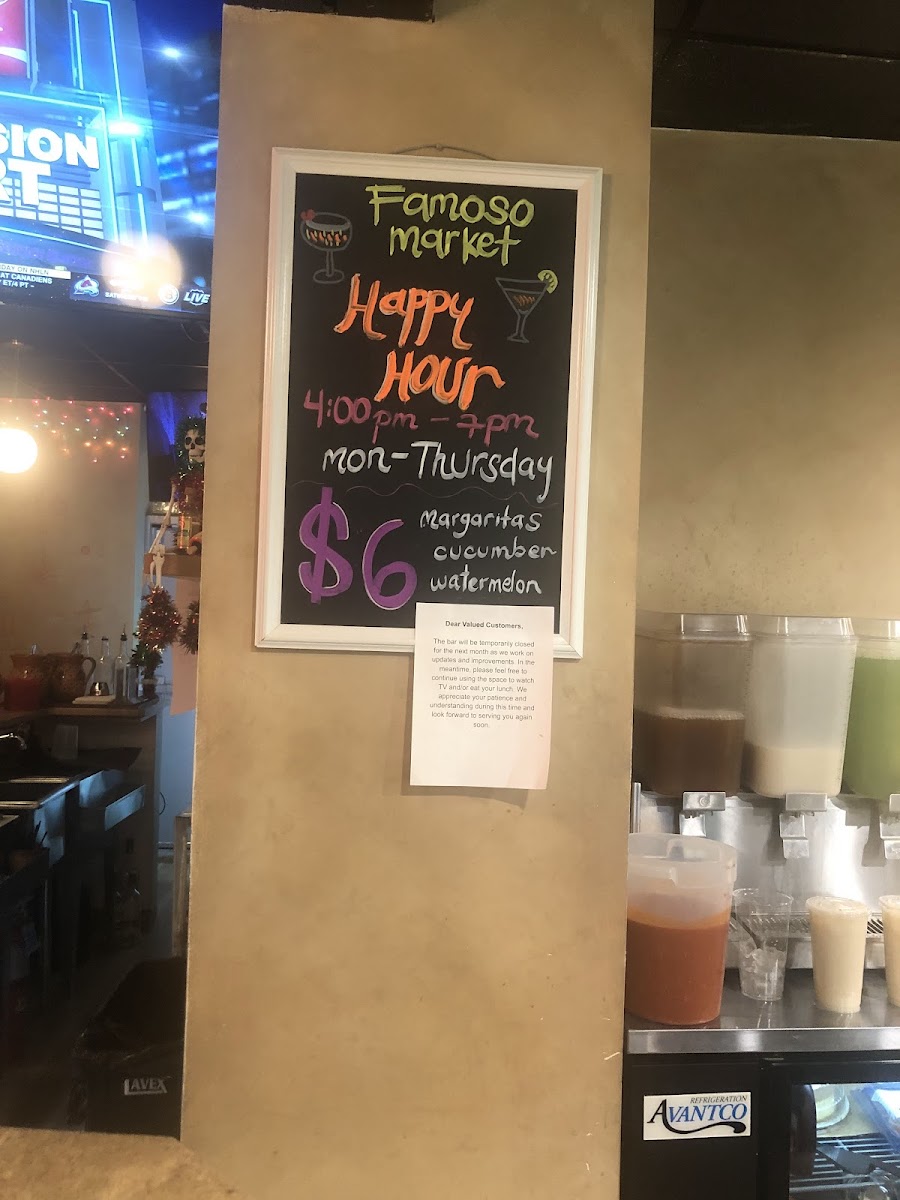 SION
RT
DAY ON NHLN
AT CANADIENS
ET/4 PT -
LIVE
Famoso
market
Happy
Hour
4:00pm - 7pm
mon-Thursday
$6
Margaritas
cucumber
watermelon
Dear Valued Customers,
The bar will be temporarily closed
for the next month as we work on
updates and improvements. In the
meantime, please feel free to
continue using the space to watch
TV and/or eat your lunch. We
appreciate your patience and
understanding during this time and
look forward to serving you again
soon.
LAVEX
REFRIGERATION
AVANTCO